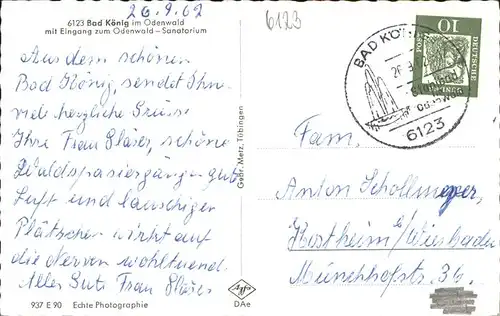 26.9.62
6123
6123 Bad König im Odenwald
mit Eingang zum Odenwald – Sanatorium
Aus dem schönen
Bad König, sendet Ihnen
viel herzliche Grüsse
Ihre Frau Gläser, schöne
Waldspaziergänge gute
Luft und lauschiger
Plätschern wirkt auf
die Nerven wohltuend.
Alles Gute Frau Gläser
937 E 90 Echte Photographie
Gebr. Metz, Tübingen
Agfa
DAe
BAD KÖNIG
6123
10
DEUTSCHE
Fam.
Anton Schollmeyer,
Kostheim/Wiesbaden
Münchhofstr. 34.